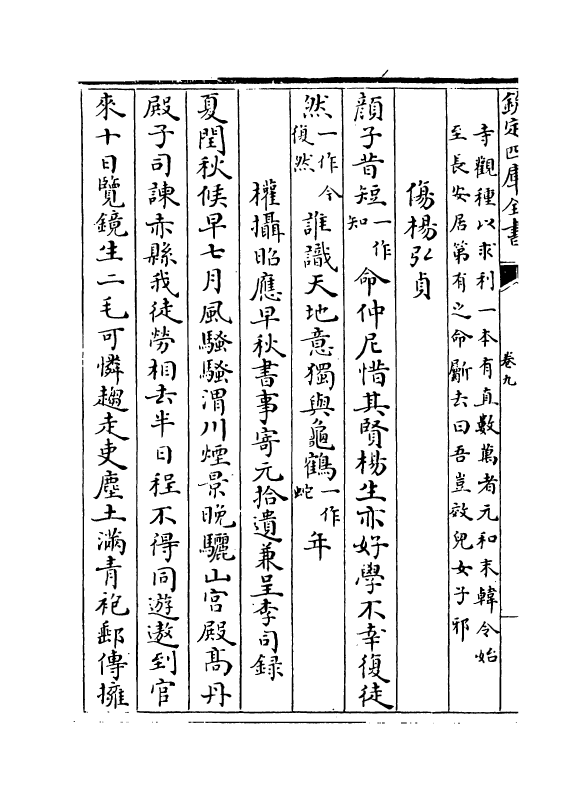 欽定四庫全書
卷九
寺觀種以求利一本有直數萬者元和末韓令始
至長安居第有之命斸去曰吾豈效兒女子邪
傷楊弘貞
顔子昔短一作知命仲尼惜其賢楊生亦好學不幸復徒
然一作今復然誰識天地意獨與龜鶴一作蛇年
權攝昭應早秋書事寄元拾遺兼呈李司錄
夏閏秋候早七月風騷騷渭川煙景晚驪山宫殿髙丹
殿子司諫赤縣我徒勞相去半日程不得同遊遨到官
來十日覽鏡生二毛可憐趨走吏塵土滿青袍郵傳擁